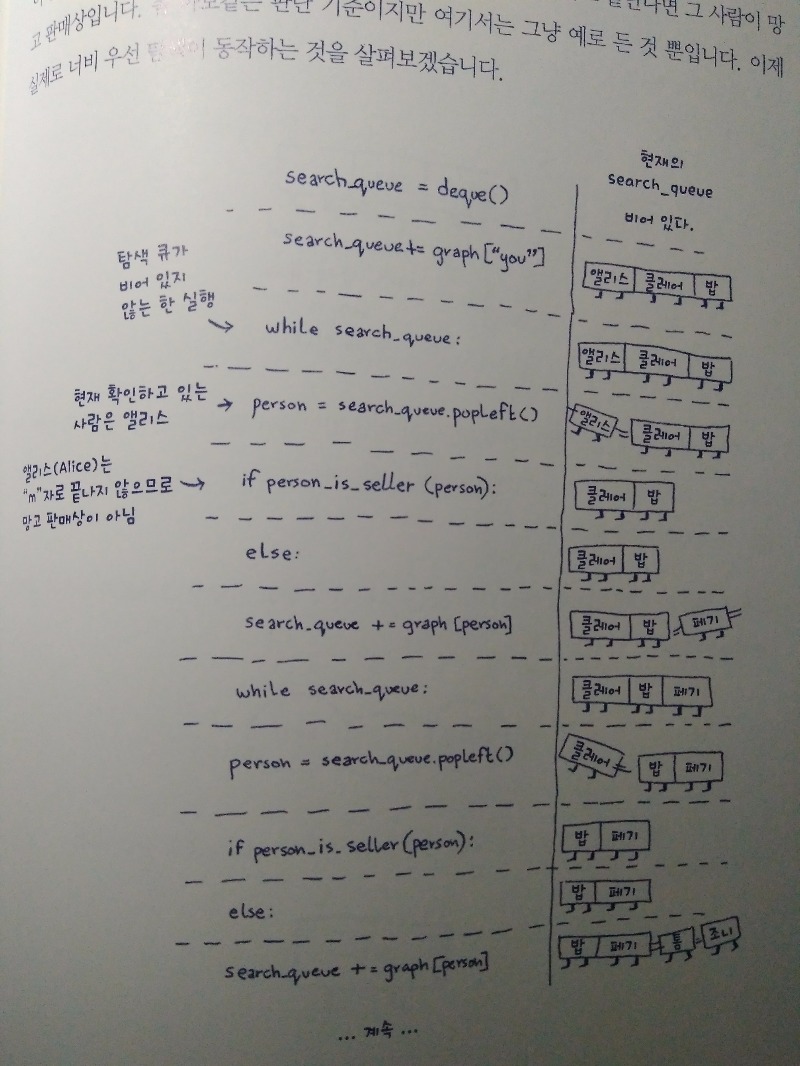 그 사람이 망
고 판매상입니다. 판단 기준이지만 여기서는 그냥 예로 든 것 뿐입니다. 이제
실제로 너비 우선 동작하는 것을 살펴보겠습니다.
현재의
search_queue
search_queue = deque()
비어 있다.
탐색 큐가
비어 있지
않는 한 실행
search_queue += graph["you"]
앨리스 클레어 밥
while search_queue:
앨리스 클레어 밥
현재 확인하고 있는
사람은 앨리스
person = search_queue.popleft()
앨리스 클레어 밥
앨리스(Alice)는
"m"자로 끝나지 않으므로
망고 판매상이 아님
if person_is_seller (person):
클레어 밥
else:
클레어 밥
search_queue += graph [person]
클레어 밥 페기
while search_queue:
클레어 밥 페기
person = search_queue.popleft()
클레어 밥 페기
if person_is_seller(person):
밥 페기
else:
밥 페기
search_queue += graph [person]
밥 페기 톰 조니
... 계속 ...